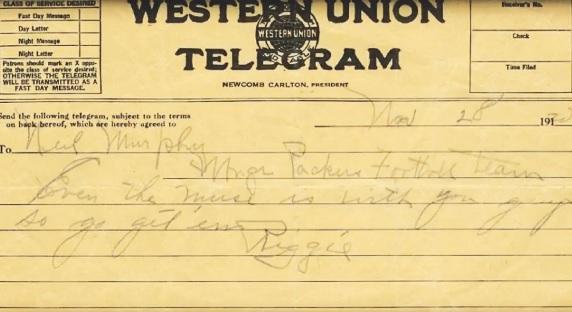 CLASS OF SERVICE DESIRED
Fast Day Message
Day Letter
Night Message
Night Letter
Patrons should mark an X oppo-
site the class of service desired;
OTHERWISE THE TELEGRAM
WILL BE TRANSMITTED AS A
FAST DAY MESSAGE.
WESTERN UNION
WESTERN UNION
TELEGRAM
NEWCOMB CARLTON, PRESIDENT
Receiver's No.
Check
Time Filed
Send the following telegram, subject to the terms
on back hereof, which are hereby agreed to
Nov 28 191
To Neil Murphy
Mngr Packers Football Team
Even the muse is with you
so go get 'em